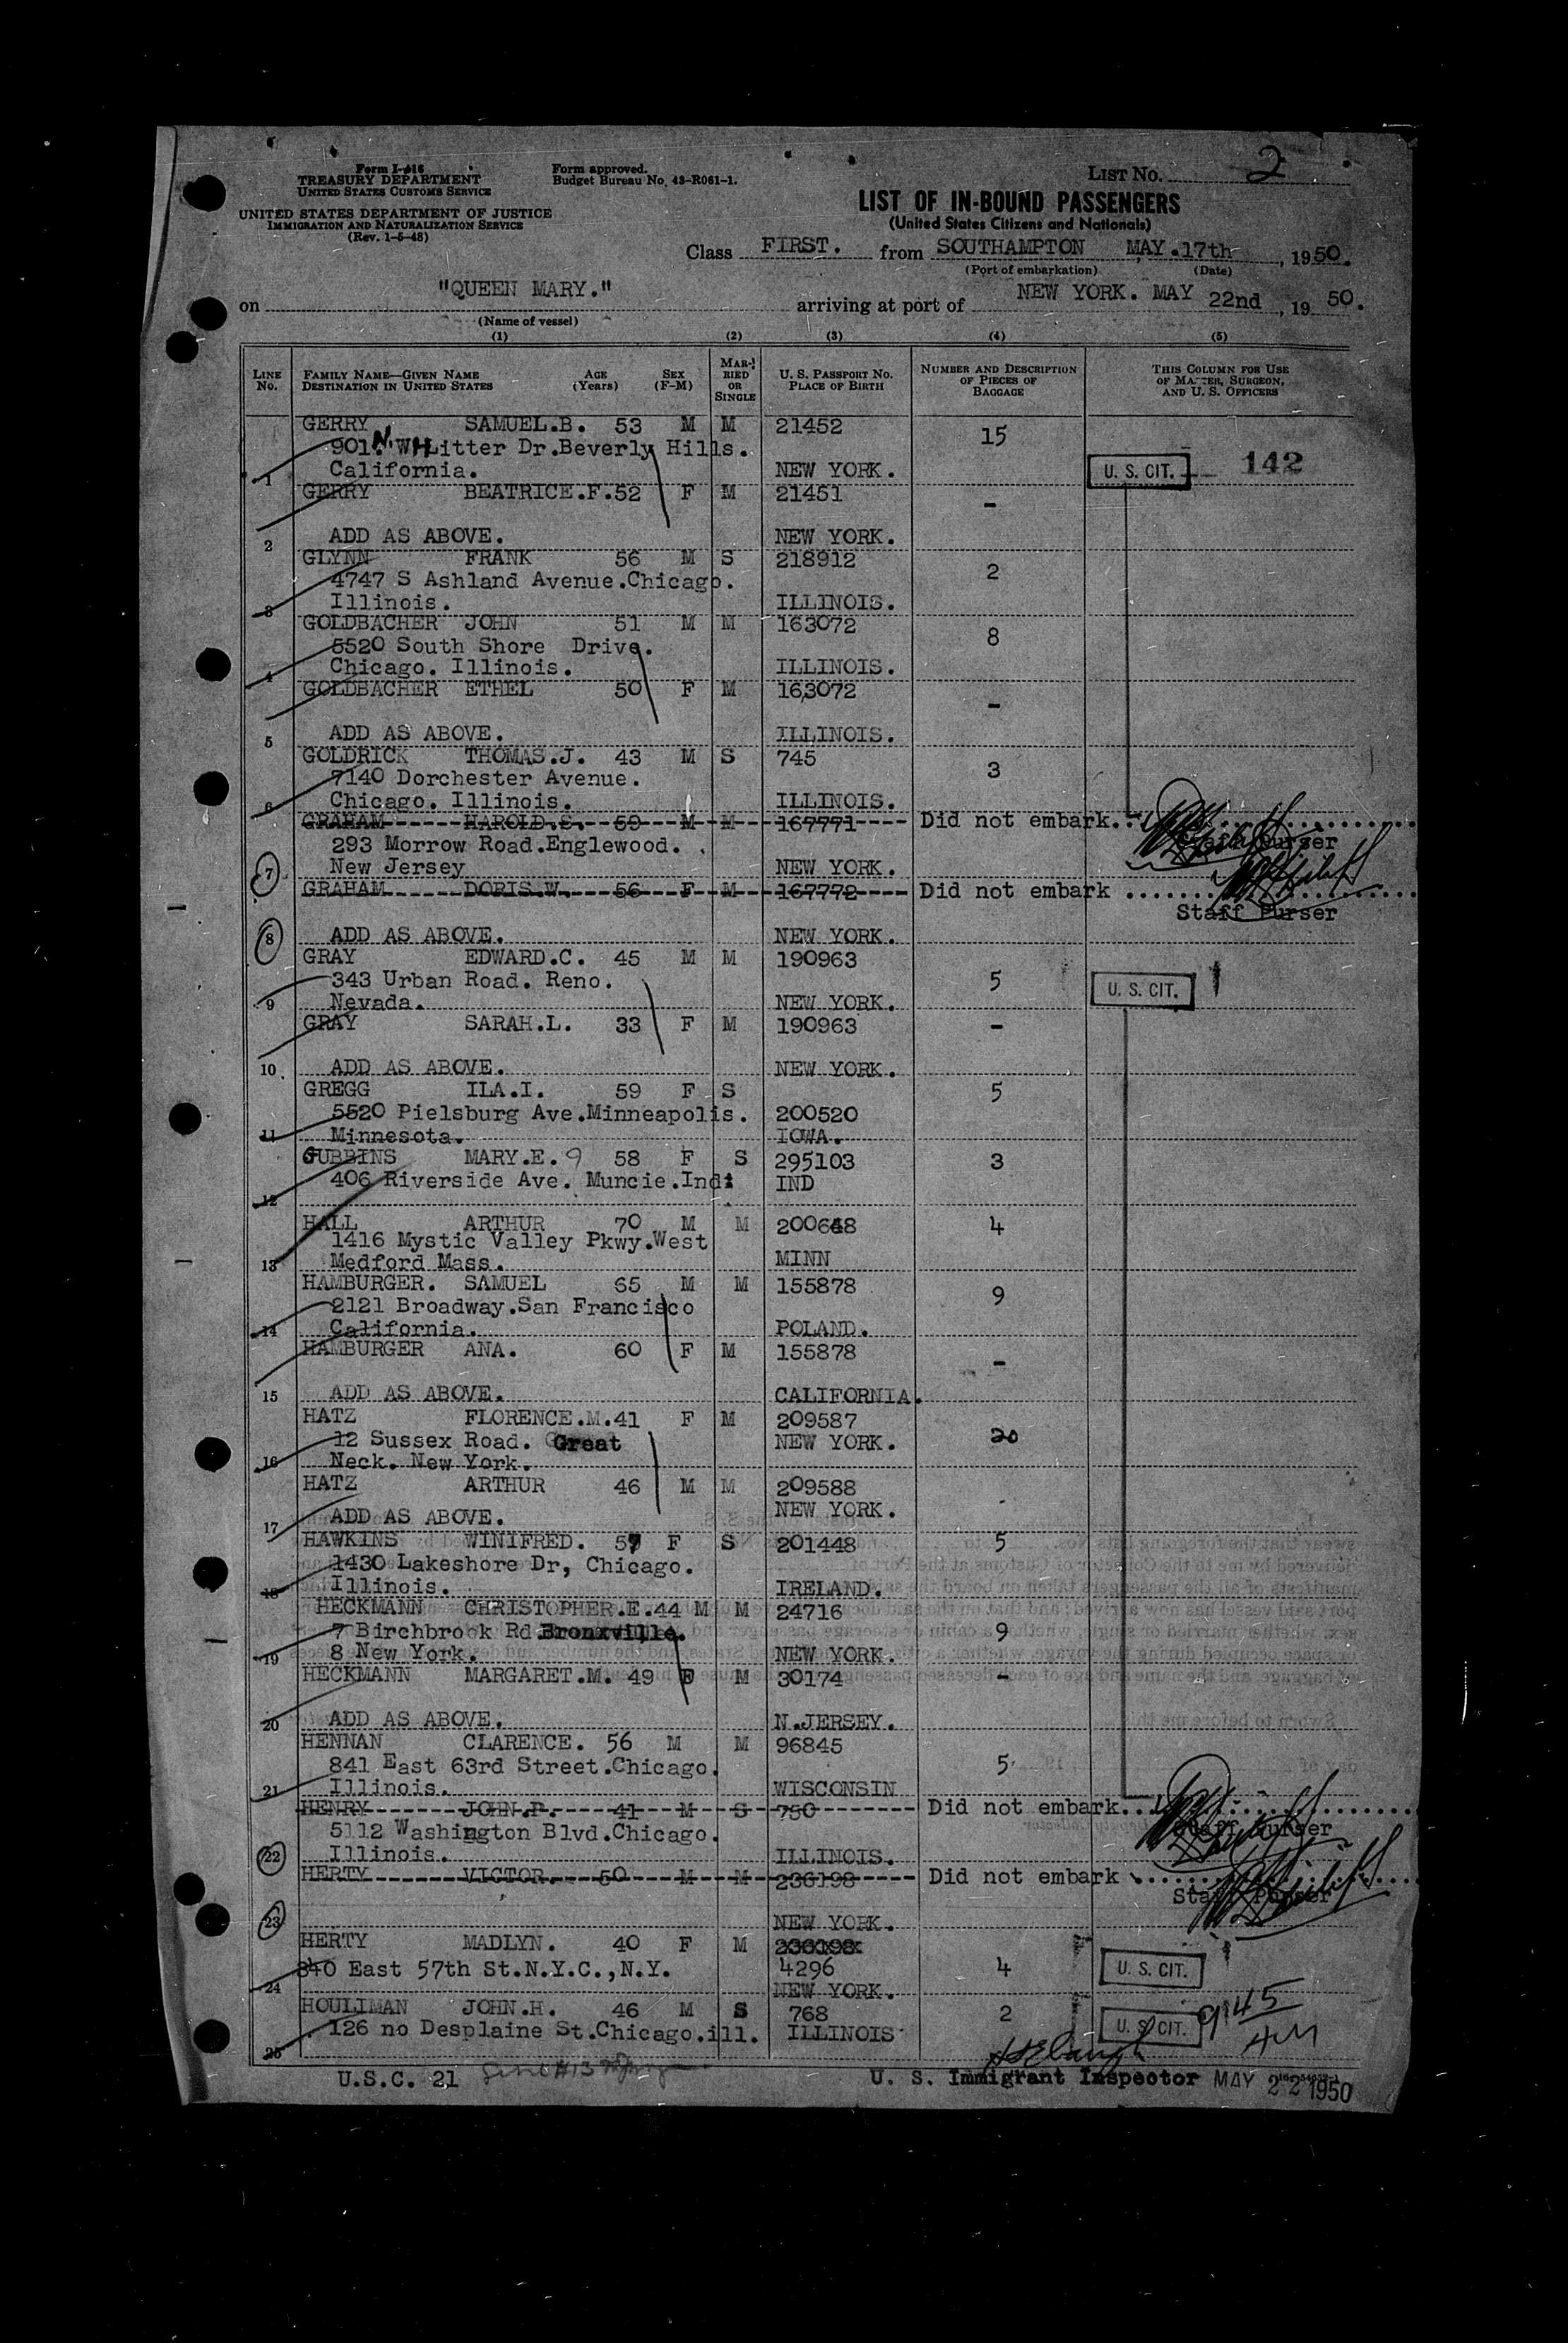 Form I-416
TREASURY DEPARTMENT
UNITED STATES CUSTOMS SERVICE
UNITED STATES DEPARTMENT OF JUSTICE
IMMIGRATION AND NATURALIZATION SERVICE
(Rev. 1-5-48)
Form approved.
Budget Bureau No. 43-R061-1.
LIST No. 2
LIST OF IN-BOUND PASSENGERS
(United States Citizens and Nationals)
Class FIRST. from SOUTHAMPTON MAY.17th, 1950.
(Port of embarkation) (Date)
on "QUEEN MARY." arriving at port of NEW YORK. MAY 22nd, 19 50.
(Name of vessel)
(1) (2) (3) (4) (5)
LINE No. FAMILY NAME—GIVEN NAME DESTINATION IN UNITED STATES AGE (Years) SEX (F-M) MARRIED OR SINGLE U. S. PASSPORT NO. PLACE OF BIRTH NUMBER AND DESCRIPTION OF PIECES OF BAGGAGE THIS COLUMN FOR USE OF MASTER, SURGEON, AND U. S. OFFICERS
GERRY SAMUEL.B. 53 M M 21452 15
901 N. WHitter Dr.Beverly Hills.
1 California. NEW YORK. U. S. CIT. 142
GERRY BEATRICE.F.52 F M 21451 -
2 ADD AS ABOVE. NEW YORK.
GLYNN FRANK 56 M S 218912 2
4747 S Ashland Avenue.Chicago.
3 Illinois. ILLINOIS.
GOLDBACHER JOHN 51 M M 163072 8
5520 South Shore Drive.
4 Chicago. Illinois. ILLINOIS.
GOLDBACHER ETHEL 50 F M 163072 -
5 ADD AS ABOVE. ILLINOIS.
GOLDRICK THOMAS.J. 43 M S 745 3
7140 Dorchester Avenue.
6 Chicago. Illinois. ILLINOIS.
GRAHAM HAROLD.S. 59 M M 167771 Did not embark.
293 Morrow Road.Englewood. Staff Purser
7 New Jersey NEW YORK.
GRAHAM DORIS.W. 56 F M 167772 Did not embark
Staff Purser
8 ADD AS ABOVE. NEW YORK.
GRAY EDWARD.C. 45 M M 190963 5
343 Urban Road. Reno. U. S. CIT.
9 Nevada. NEW YORK.
GRAY SARAH.L. 33 F M 190963 -
10 ADD AS ABOVE. NEW YORK.
GREGG ILA.I. 59 F S 5
5520 Pielsburg Ave.Minneapolis. 200520
11 Minnesota. IOWA.
GUBBINS MARY.E. 9 58 F S 295103 3
406 Riverside Ave. Muncie.Ind. IND
12
HALL ARTHUR 70 M M 200648 4
1416 Mystic Valley Pkwy.West
13 Medford Mass. MINN
HAMBURGER. SAMUEL 65 M M 155878 9
2121 Broadway.San Francisco
14 California. POLAND.
HAMBURGER ANA. 60 F M 155878 -
15 ADD AS ABOVE. CALIFORNIA.
HATZ FLORENCE.M.41 F M 209587
12 Sussex Road. Great NEW YORK. 20
16 Neck. New York.
HATZ ARTHUR 46 M M 209588
NEW YORK.
17 ADD AS ABOVE.
HAWKINS WINIFRED. 57 F S 201448 5
1430 Lakeshore Dr, Chicago.
18 Illinois. IRELAND.
HECKMANN CHRISTOPHER.E.44 M M 24716
7 Birchbrook Rd Bronxville. 9
19 8 New York. NEW YORK.
HECKMANN MARGARET.M. 49 F M 30174 -
20 ADD AS ABOVE. N.JERSEY.
HENNAN CLARENCE. 56 M M 96845
841 East 63rd Street.Chicago. 5
21 Illinois. WISCONSIN
HENRY JOHN.P. 41 M S 750 Did not embark.
5112 Washington Blvd.Chicago. Staff Purser
22 Illinois. ILLINOIS.
HERTY VICTOR. 50 M M 236198 Did not embark
Staff Purser
23 NEW YORK.
HERTY MADLYN. 40 F M 236198
840 East 57th St.N.Y.C.,N.Y. 4296 4 U. S. CIT.
24 NEW YORK.
HOULIMAN JOHN.H. 46 M S 768 2 U. S. CIT. 9:45 AM
126 no Desplaine St.Chicago.ill. ILLINOIS
25
U.S.C. 21 U. S. Immigrant Inspector MAY 22 1950